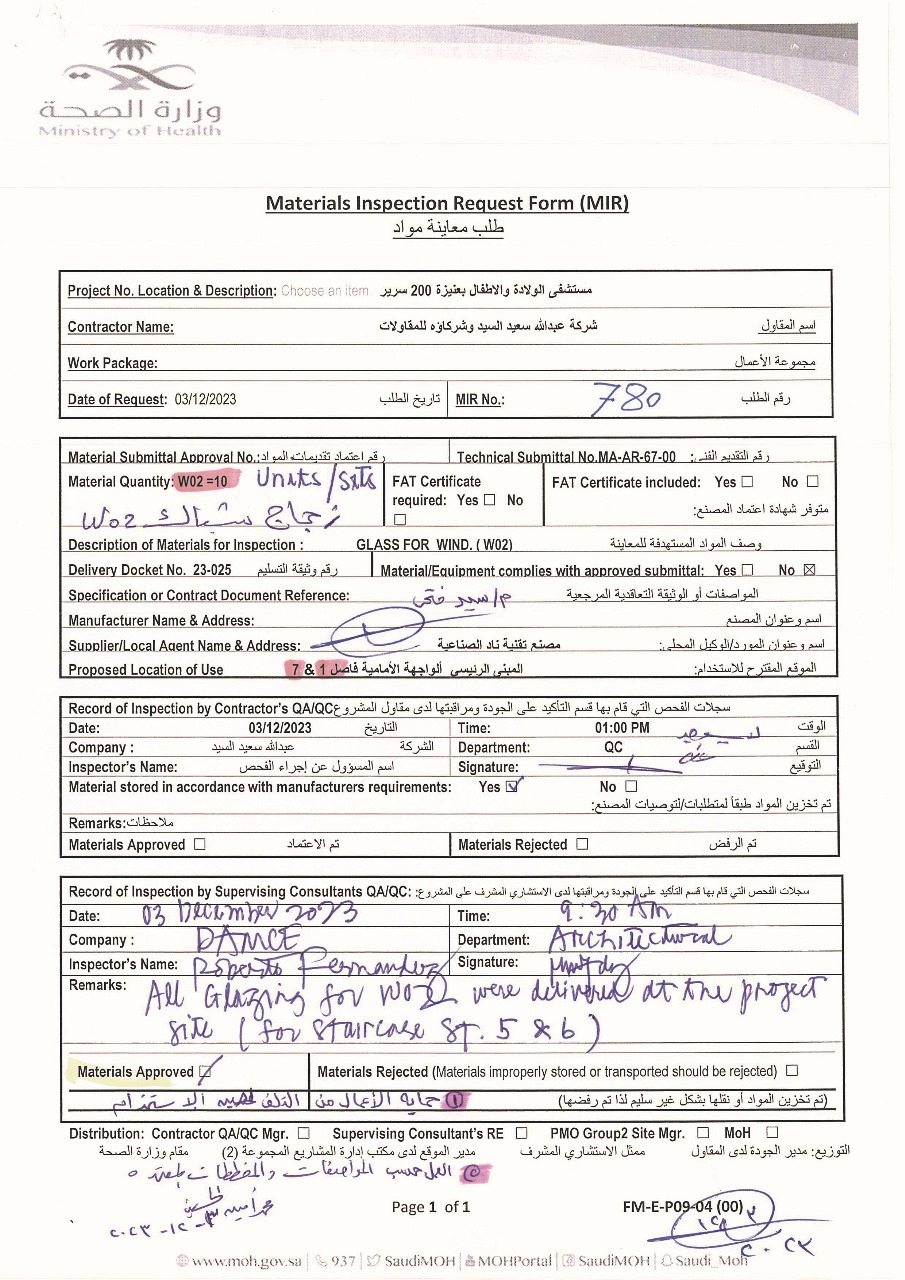 وزارة الصحة
Ministry of Health
Materials Inspection Request Form (MIR)
طلب معاينة مواد
Project No. Location & Description: Choose an item. مستشفى الولادة والاطفال بعنيزة 200 سرير
Contractor Name: شركة عبدالله سعيد السيد وشركاؤه للمقاولات اسم المقاول
Work Package: مجموعة الأعمال
Date of Request: 03/12/2023 تاريخ الطلب MIR No.: 780 رقم الطلب
Material Submittal Approval No.: رقم اعتماد تقديمات المواد: Technical Submittal No.MA-AR-67-00 رقم التقديم الفني:
Material Quantity: W02 =10 Units/Sets FAT Certificate required: Yes ☐ No ☐ FAT Certificate included: Yes ☐ No ☐
زجاج شباك W02 متوفر شهادة اعتماد المصنع:
Description of Materials for Inspection : GLASS FOR WIND. ( W02) وصف المواد المستهدفة للمعاينة
Delivery Docket No. 23-025 رقم وثيقة التسليم Material/Equipment complies with approved submittal: Yes ☐ No ☒
Specification or Contract Document Reference: م/سيد فتحى المواصفات أو الوثيقة التعاقدية المرجعية
Manufacturer Name & Address: اسم وعنوان المصنع
Supplier/Local Agent Name & Address: مصنع تقنية ناد الصناعية اسم وعنوان المورد/الوكيل المحلي:
Proposed Location of Use المبنى الرئيسي ألواجهة الأمامية فاصل 1 & 7 الموقع المقترح للاستخدام:
Record of Inspection by Contractor's QA/QC سجلات الفحص التي قام بها قسم التأكيد على الجودة ومراقبتها لدى مقاول المشروع
Date: 03/12/2023 التاريخ Time: 01:00 PM الوقت
Company : عبدالله سعيد السيد الشركة Department: QC القسم
Inspector's Name: اسم المسؤول عن إجراء الفحص Signature: التوقيع
Material stored in accordance with manufacturers requirements: Yes ☑ No ☐
تم تخزين المواد طبقاً لمتطلبات/لتوصيات المصنع:
Remarks: ملاحظات:
Materials Approved ☐ تم الاعتماد Materials Rejected ☐ تم الرفض
Record of Inspection by Supervising Consultants QA/QC: سجلات الفحص التي قام بها قسم التأكيد على الجودة ومراقبتها لدى الاستشاري المشرف على المشروع:
Date: 03 December 2023 Time: 9:30 AM
Company : DAMCE Department: Architectural
Inspector's Name: Roberto Fernandez Signature:
Remarks: All Glazing for W02 were delivered at the project
site (for Staircase St. 5 & 6)
Materials Approved ☑ Materials Rejected (Materials improperly stored or transported should be rejected) ☐
① حماية الأعمال من التلف لحين الاستخدام (تم تخزين المواد أو نقلها بشكل غير سليم لذا تم رفضها)
Distribution: Contractor QA/QC Mgr. ☐ Supervising Consultant's RE ☐ PMO Group2 Site Mgr. ☐ MoH ☐
التوزيع: مدير الجودة لدى المقاول ممثل الاستشاري المشرف مدير الموقع لدى مكتب إدارة المشاريع المجموعة (2) مقام وزارة الصحة
العمل حسب المواصفات والمخططات
٢٠٢٣-١٢-٣
Page 1 of 1 FM-E-P09-04 (00)
www.moh.gov.sa | 937 | SaudiMOH | MOHPortal | SaudiMOH | Saudi_Moh